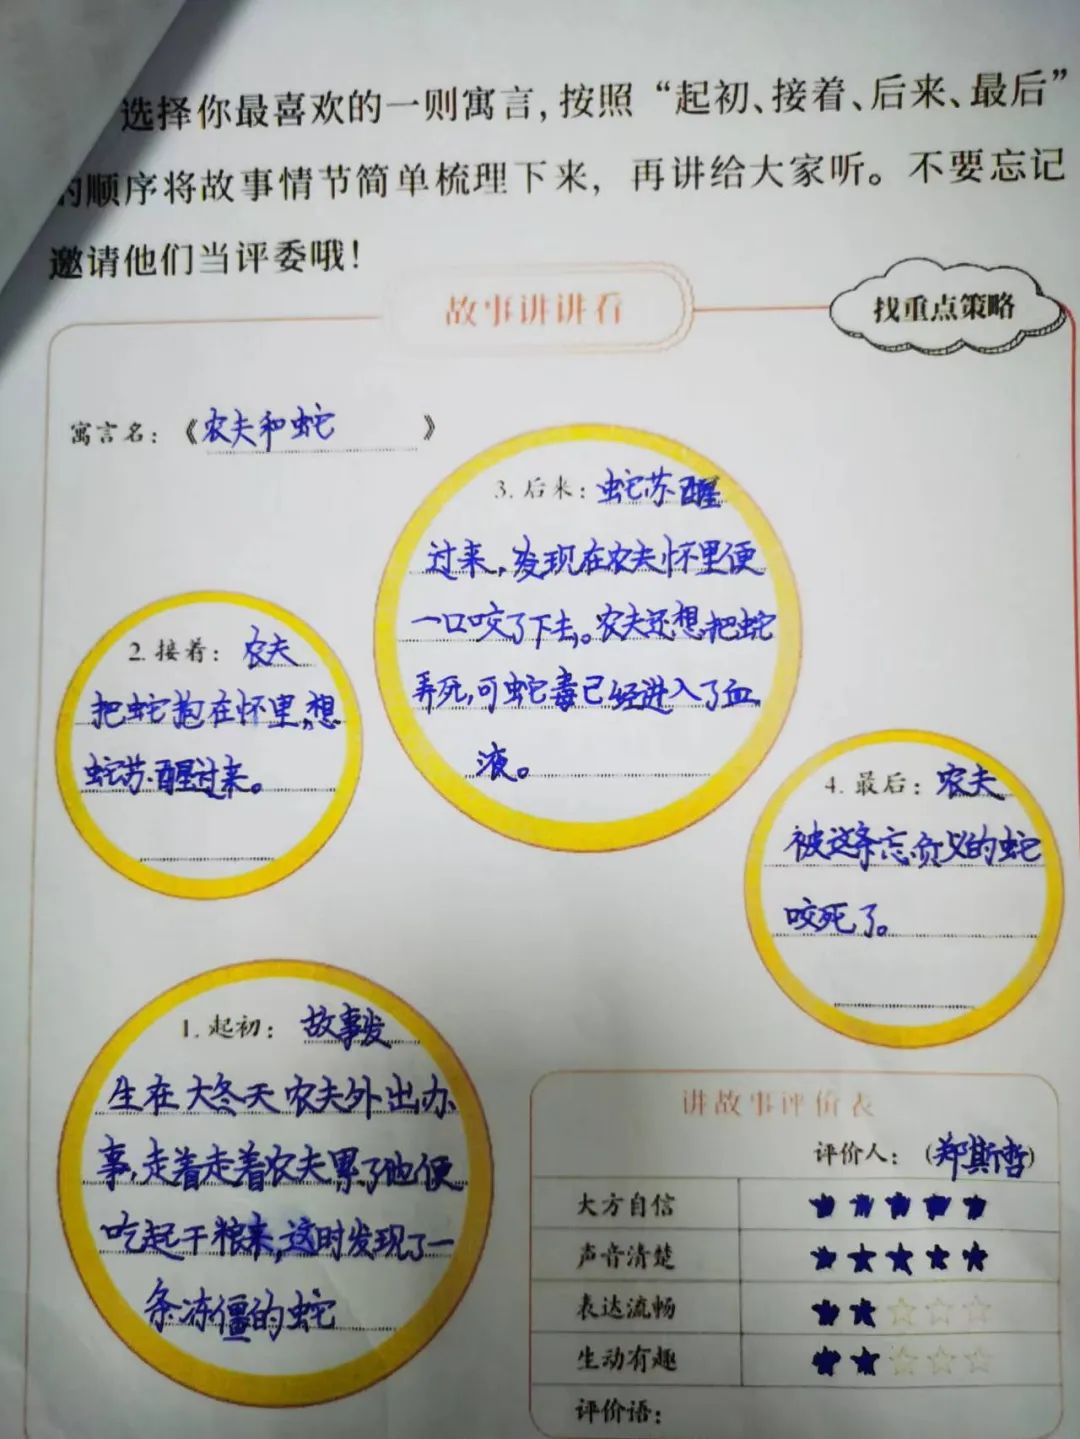 选择你最喜欢的一则寓言,按照“起初、接着、后来、最后”
的顺序将故事情节简单梳理下来，再讲给大家听。不要忘记
邀请他们当评委哦!
故事讲讲看
找重点策略
寓言名:《农夫和蛇》
3.后来:蛇苏醒
过来,发现在农夫怀里便
一口咬了下去。农夫还想把蛇
弄死,可蛇毒已经进入了血
液。
2.接着:农夫
把蛇抱在怀里,想
蛇苏醒过来。
4.最后:农夫
被这条忘负义的蛇
咬死了。
1.起初:故事发
生在大冬天农夫外出办
事,走着走着农夫累了他便
吃起干粮来,这时发现了一
条冻僵的蛇
讲故事评价表
评价人:(郑斯哲)
大方自信 ★★★★★
声音清楚 ★★★★★
表达流畅 ★★☆☆☆
生动有趣 ★★☆☆☆
评价语: